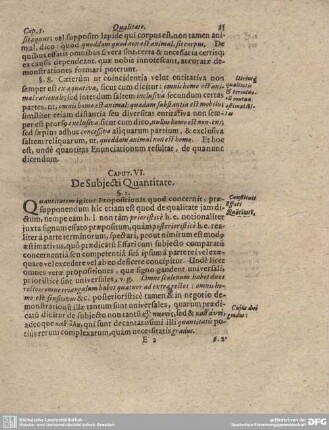 Cap. 5. Qualitate. 35
sit equus; vel supposito lapide qui corpus est, non tamen animal, dico: quod quoddam quod non est animal, sit corpus. De
quibus casibus omnibus si vera sint, certa & necessaria certisq;
ex causis dependeant, quæ nobis innotescant, accuratè demonstrationes
formari poterunt.
§. 8. Cæterùm ut coincidentia velut entitativa non
semper est ex æquo vera, sicut cum dicitur: omnis homo est animal
rationale; sed interdum saltem inclusiva secundum certas
partes: ut, omnis homo est animal; quædam substantia est mobilis:
similiter etiam distantia seu diversitas entitativa non semper
est prorsus exclusiva, sicut cum dico, nullus homo est non-ens;
sed sæpius adhuc concessiva aliquarum partium, & exclusiva
saltem reliquarum, ut, quoddam animal non est homo. Et hoc
est, undè quantitas Enunciationum resultat, de qua nunc
dicendum.
CAPUT. VI.
De Subjecti Quantitate.
§. 1.
Quantitatem igitur Propositionis quod concernit, præsupponendum
hic etiam est quod de qualitate jam dictum,
nempe eam h. l. non tàm prioristicè h. e. notionaliter
juxta signum effato præpositum, quàm posterioristicè h. e. realiter
à parte terminorum, spectari, prout nimirum est modus
æstimativus, quò prædicati Effati cum subjecto comparati
concernentiâ seu competentiâ sci ipsum à parte rei vel exæquare
vel excedere vel ab eo deficere concipitur. Undè licet
omnes veræ propositiones, quæ signo gaudent universali,
prioristicè sint universales, v. g. Omne scalenum habet duos
rectos: omne triangulum habet quatuor ad extra rectos: omnis homo
est sensitivus &c. posterioristicè tamen & in negotio demonstrationis
illæ tantùm sunt universales, quarum prædicatum
dicitur de subjecto non tantùm
adeoque καθ᾽ ὅλου, qui sunt decantatissimi illi quantitatis potius
rerum complexarum, quàm necessitatis gradus.
E 2 §. 2.
Constituit
Effati
Quantitatem
Cujus duo
gradus: